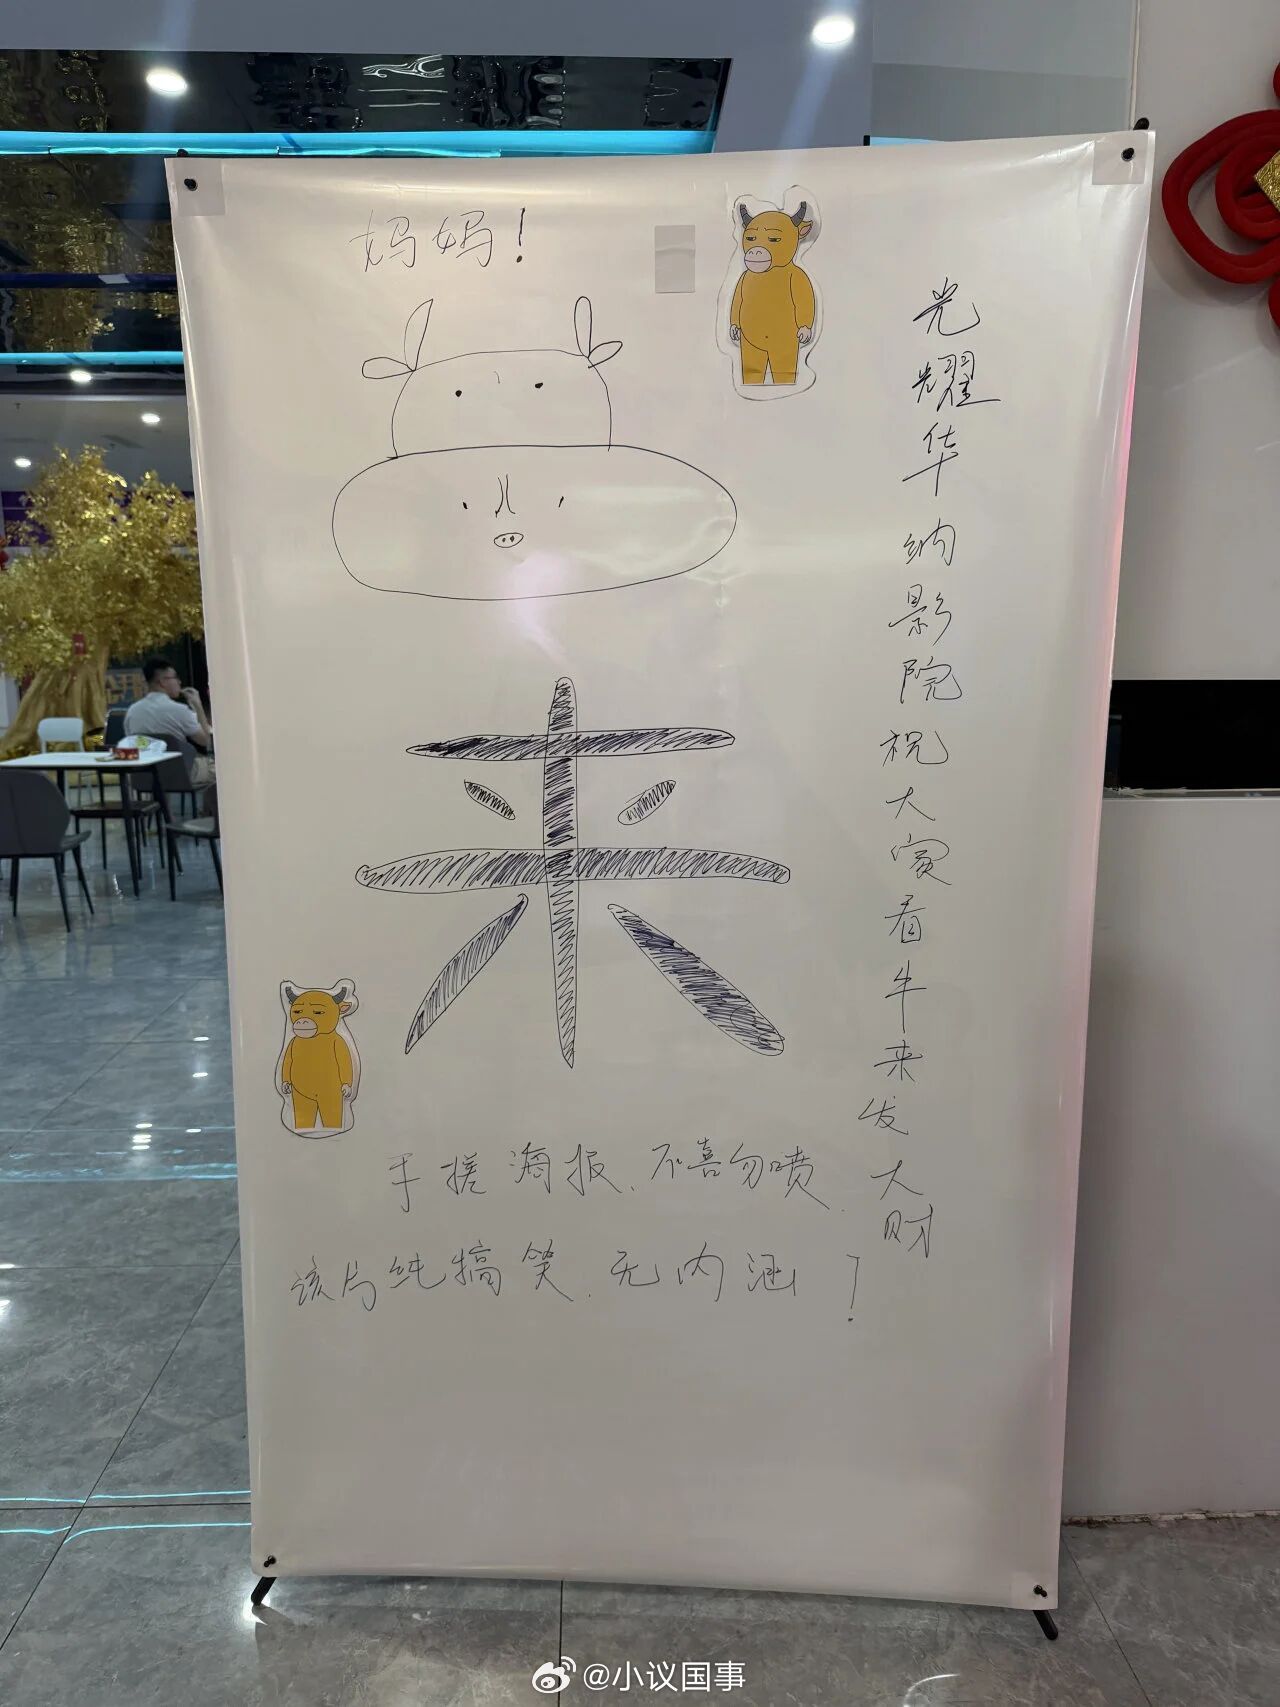 妈妈！
光耀华纳影院祝大家看牛来发大财
来
手搓海报、不喜勿喷.
该片纯搞笑.无内涵！
@小议国事